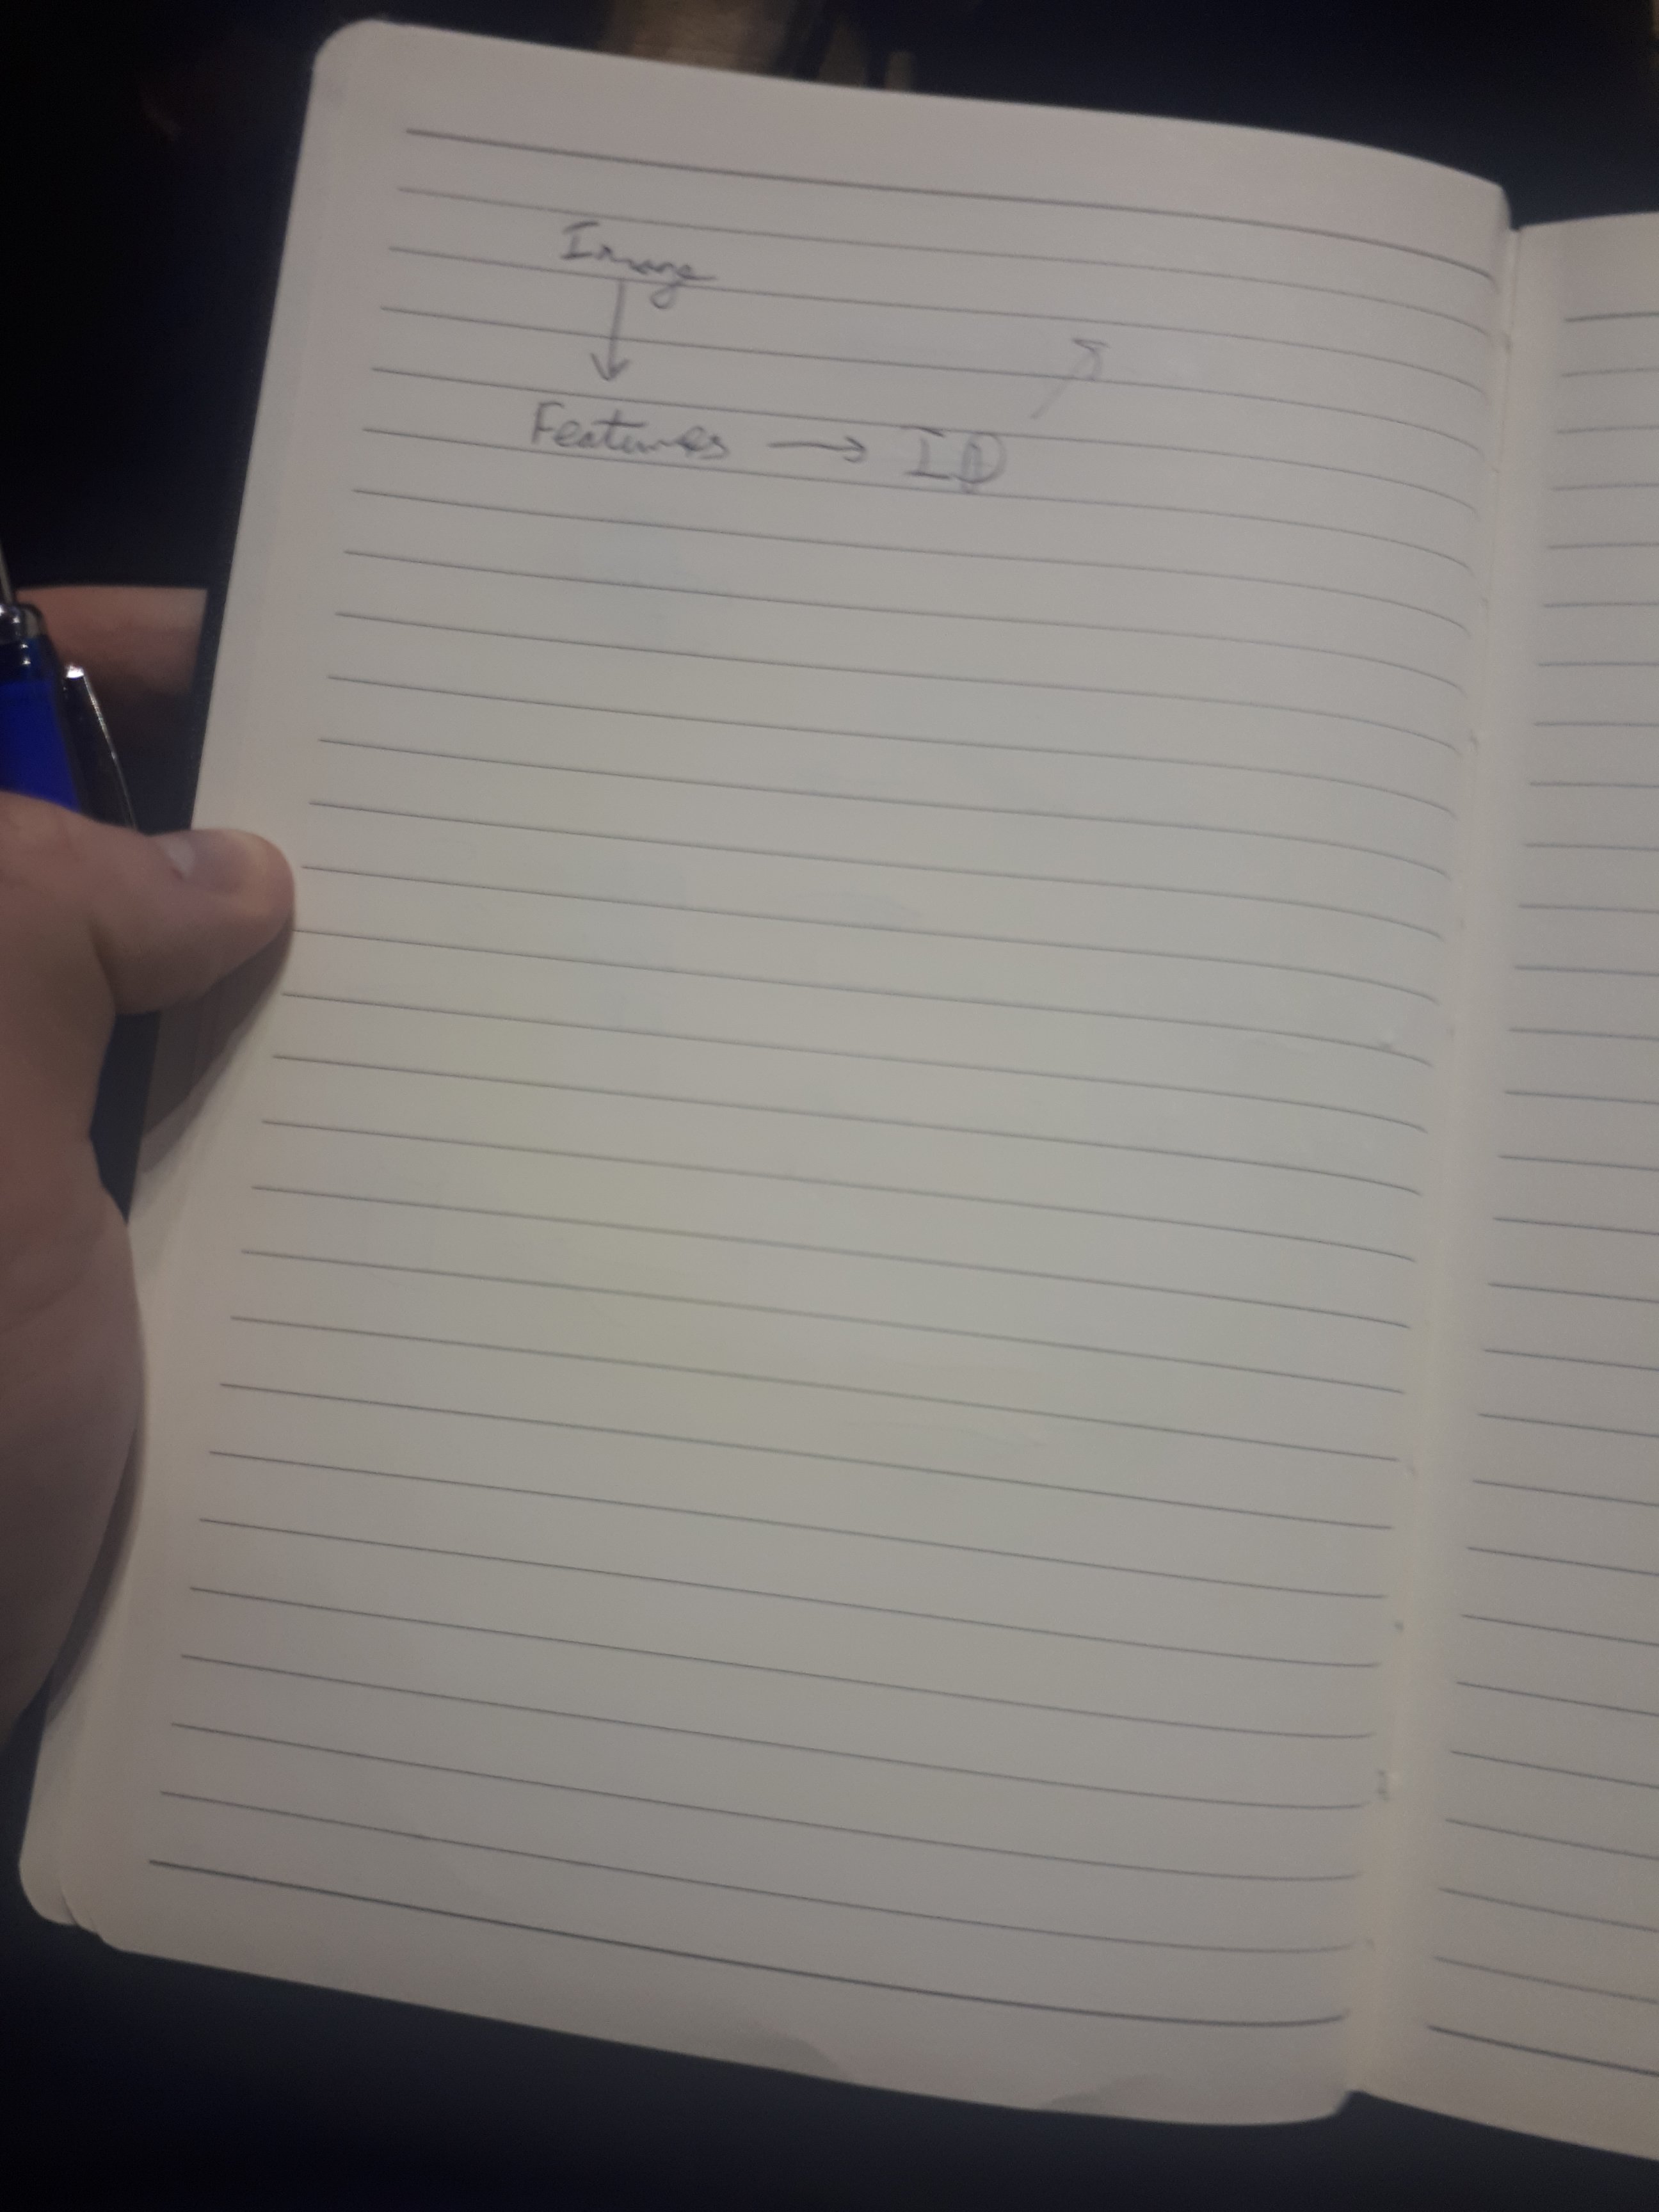 Image
Features → ID